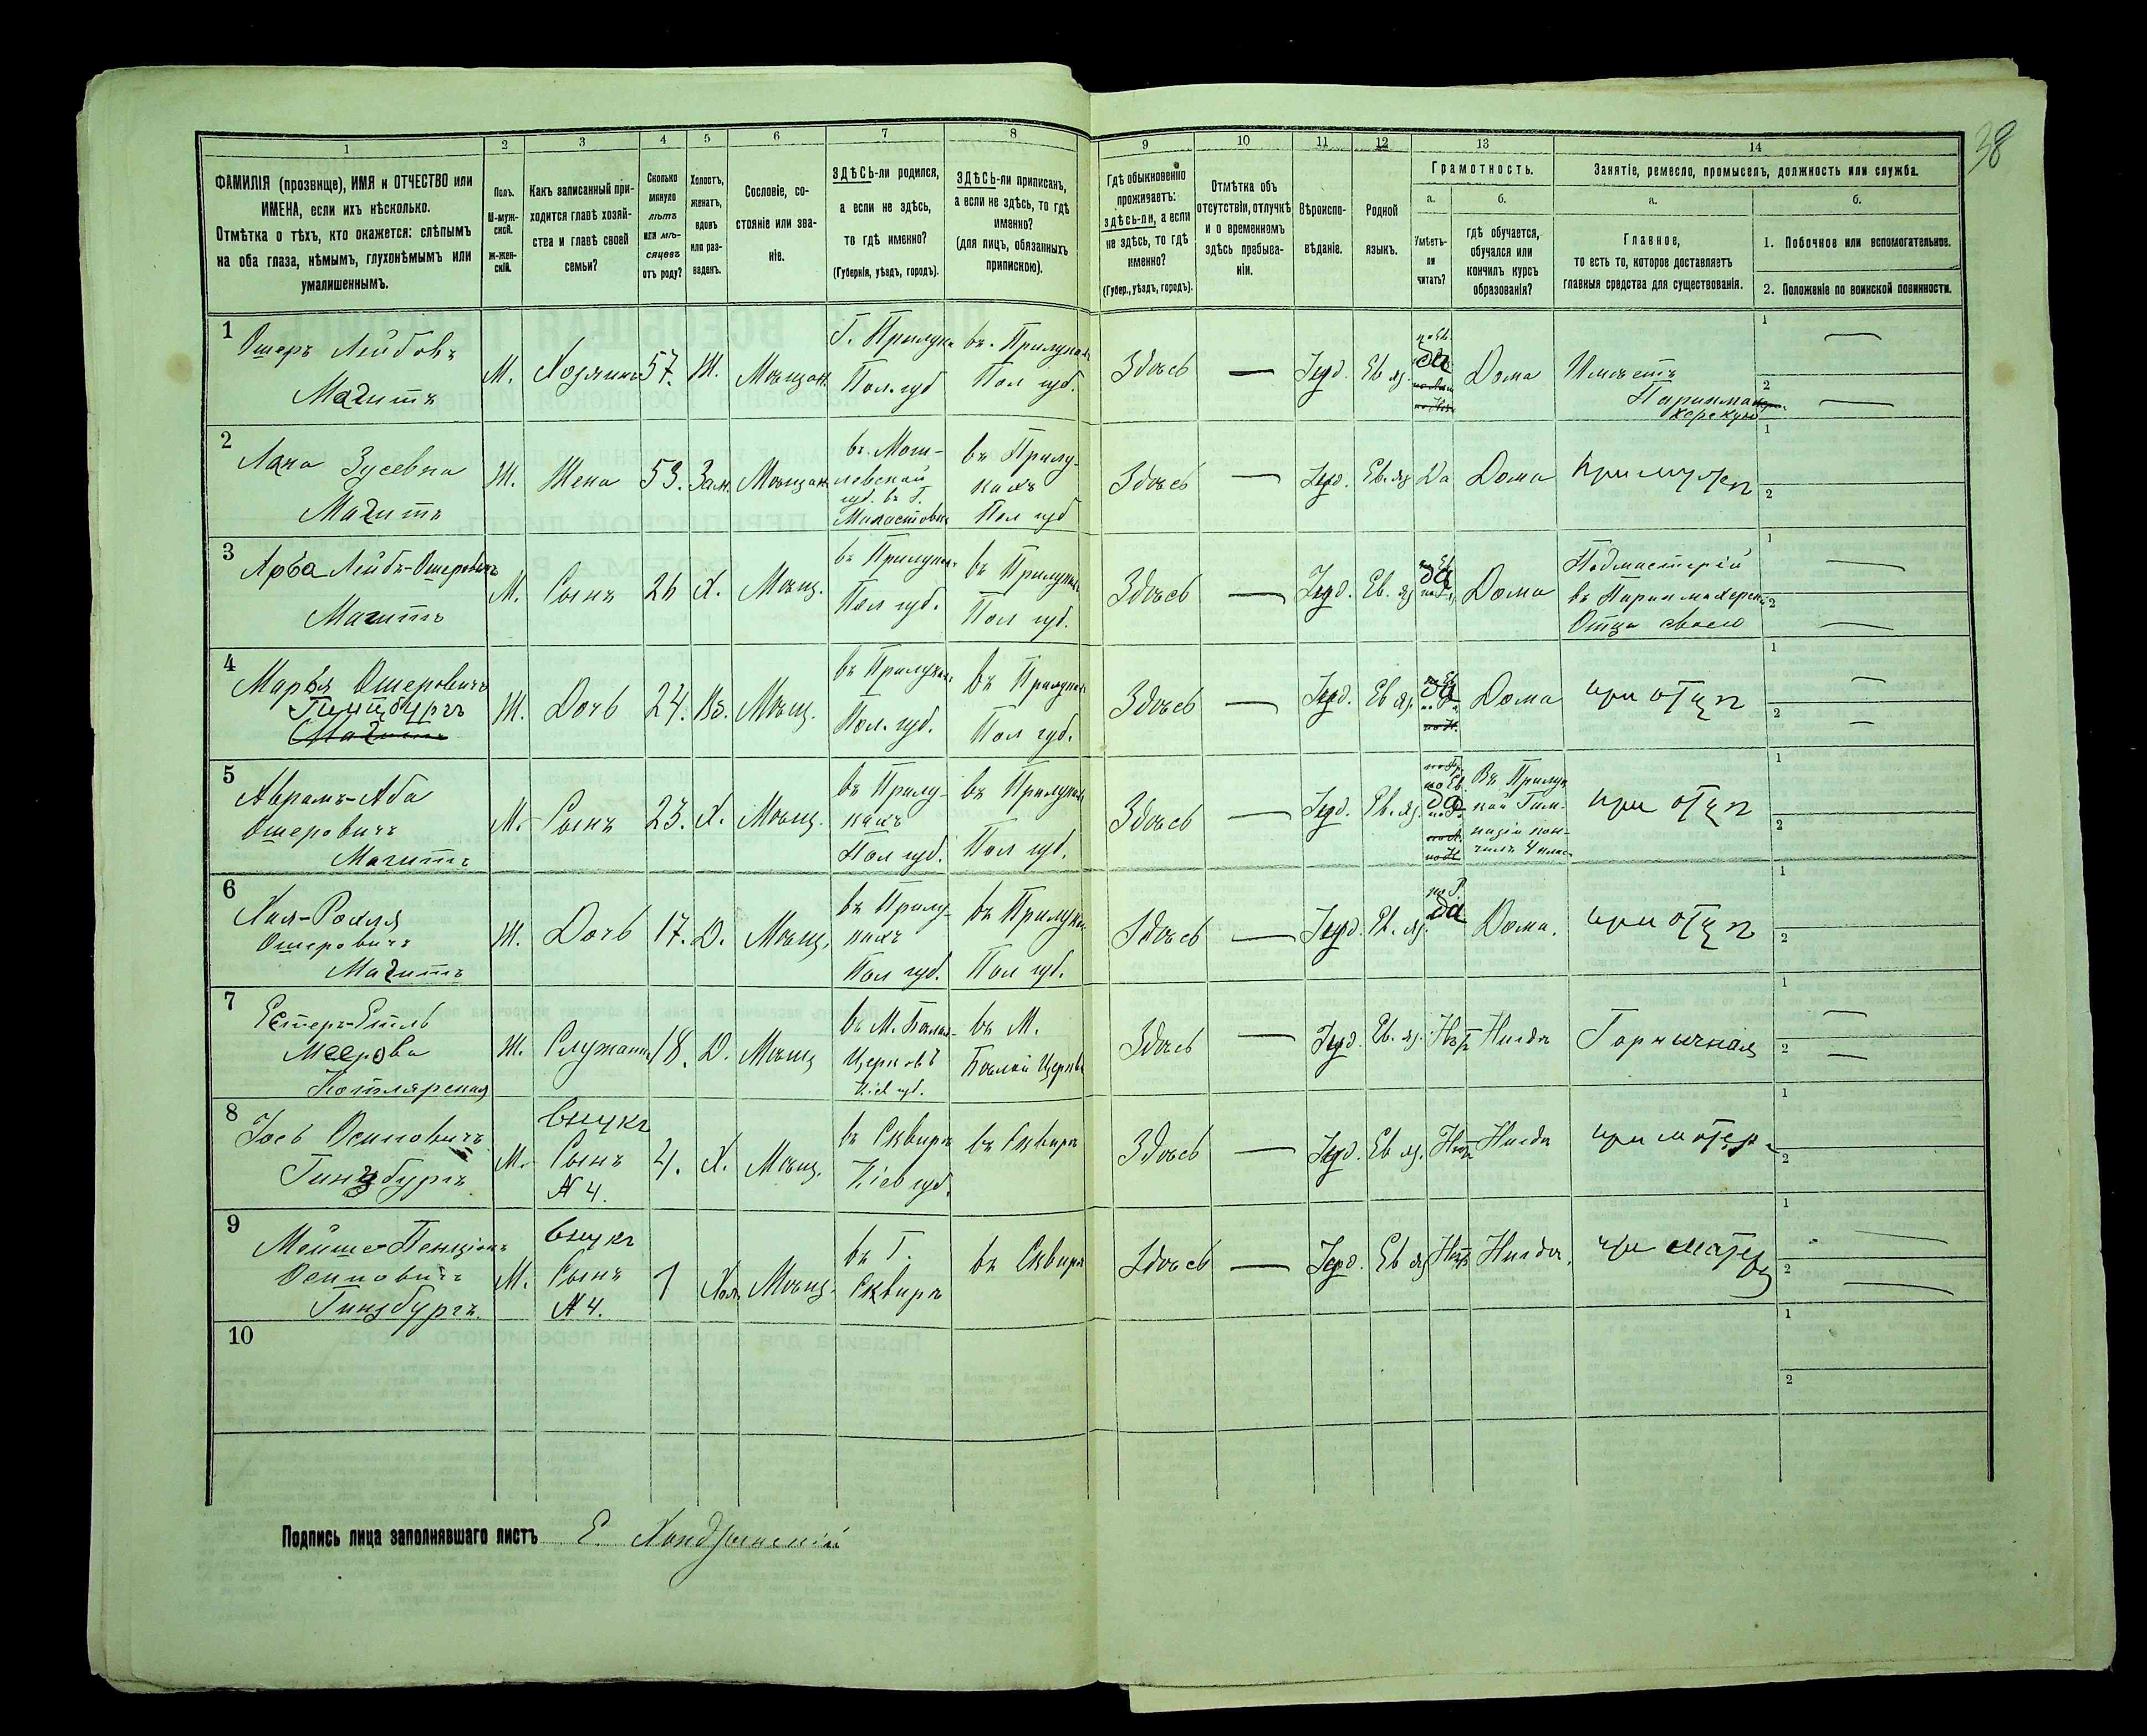 38
1
2
3
4
5
6
7
8
9
10
11
12
13
14
ФАМИЛІЯ (прозвище), ИМЯ и ОТЧЕСТВО или
ИМЕНА, если ихъ нѣсколько.
Отмѣтка о тѣхъ, кто окажется: слѣпымъ
на оба глаза, нѣмымъ, глухонѣмымъ или
умалишеннымъ.
Полъ.
М-муж-
ской.
Ж-жен-
скій.
Какъ записанный при-
ходится главѣ хозяй-
ства и главѣ своей
семьи?
Сколько
минуло
лѣтъ
или мѣ-
сяцевъ
отъ роду?
Холостъ,
женатъ,
вдовъ
или раз-
веденъ.
Сословіе, со-
стояніе или зва-
ніе.
ЗДѢСЬ-ли родился,
а если не здѣсь,
то гдѣ именно?
(Губернія, уѣздъ, городъ).
ЗДѢСЬ-ли приписанъ,
а если не здѣсь, то гдѣ
именно?
(для лицъ, обязанныхъ
припискою).
Гдѣ обыкновенно
проживаетъ:
здѣсь-ли, а если
не здѣсь, то гдѣ
именно?
(Губер., уѣздъ, городъ).
Отмѣтка объ
отсутствіи, отлучкѣ
и о временномъ
здѣсь пребыва-
ніи.
Вѣроиспо-
вѣданіе.
Родной
языкъ.
Грамотность.
а.
Умѣетъ-
ли
читать?
б.
гдѣ обучается,
обучался или
кончилъ курсъ
образованія?
Занятіе, ремесло, промыселъ, должность или служба.
а.
Главное,
то есть то, которое доставляетъ
главныя средства для существованія.
б.
1. Побочное или вспомогательное.
2. Положеніе по воинской повинности.
1
Ошеръ Лейбовъ
Магитъ
М.
Хозяинъ
57.
Ж.
Мѣщан.
Г. Прилуки
Пол. губ
въ. Прилукахъ
Пол губ.
Здѣсь
—
Іуд.
Ев яз.
по Ев.
да
Дома
Имѣетъ
Парикма
херскую
1
—
2
—
2
Зусевна
Магитъ
Ж.
Жена
53.
Зам.
Мѣщан
въ. Моги-
левской
губ. въ Г.
въ Прилу-
кахъ
Пол губ
Здѣсь
—
Іуд.
Ев. яз
Да
Дома
при мужѣ
1
2
3
Лейбъ-Ошеровичъ
Магитъ
М.
Сынъ
26
Х.
Мѣщ.
въ Прилукахъ
Пол губ.
въ Прилукахъ
Пол губ.
Здѣсь
—
Іуд.
Ев. яз
да
Дома
Подмастерій
въ Парикмахерской
Отца своего
1
—
2
—
4
Марья Ошеровичъ
Гинцбургъ
Магитъ
Ж.
Дочь
24.
Вд.
Мѣщ.
въ Прилукахъ
Пол. губ.
въ Прилукахъ
Пол губ.
Здѣсь
—
Іуд.
Ев яз.
да
Дома
при отцѣ
1
—
2
—
5
Аврамъ-Аба
Ошеровичъ
Магитъ
М.
Сынъ
23.
Х.
Мѣщ.
въ Прилу-
кахъ
Пол губ.
въ Прилукахъ
Пол губ.
Здѣсь
—
Іуд.
Ев. яз.
по Ев.
да
Въ Прилуц
кой Гим-
назіи кон-
чилъ 4 клас
при отцѣ
1
2
6
Хая-Рохля
Ошеровичъ
Магитъ
Ж.
Дочь
17.
Д.
Мѣщ.
въ Прилу-
кахъ
Пол губ.
въ Прилукахъ
Пол губ.
Здѣсь
—
Іуд.
Ев. яз.
по Р.
да
Дома.
при отцѣ
1
2
7
Естеръ-Етль
Меерова
Котлярская
Ж.
Служанка
18.
Д.
Мѣщ
въ М. Бѣлая-
Церковь
Кіев губ.
въ М.
Бѣлой Церкви
Здѣсь
—
Іуд.
Ев. яз.
Нѣтъ
Нигдѣ
Горничная
1
—
2
—
8
Іось Осиповичъ
Гинзбургъ
М.
внукъ
Сынъ
N 4.
4.
Х.
Мѣщ.
въ Сквирѣ
Кіев губ.
въ Сквирѣ
Здѣсь
—
Іуд.
Ев яз.
Нѣтъ
Нигдѣ
при матери
1
2
9
Осиповичъ
Гинзбургъ.
М.
внукъ
Сынъ
N 4.
1
Хол.
Мѣщ.
въ Г.
Сквирѣ
въ Сквирѣ
Здѣсь
—
Іуд.
Ев яз
Нѣтъ
Нигдѣ.
при матери
1
—
2
—
10
1
2
Подпись лица заполнявшаго листъ Е.